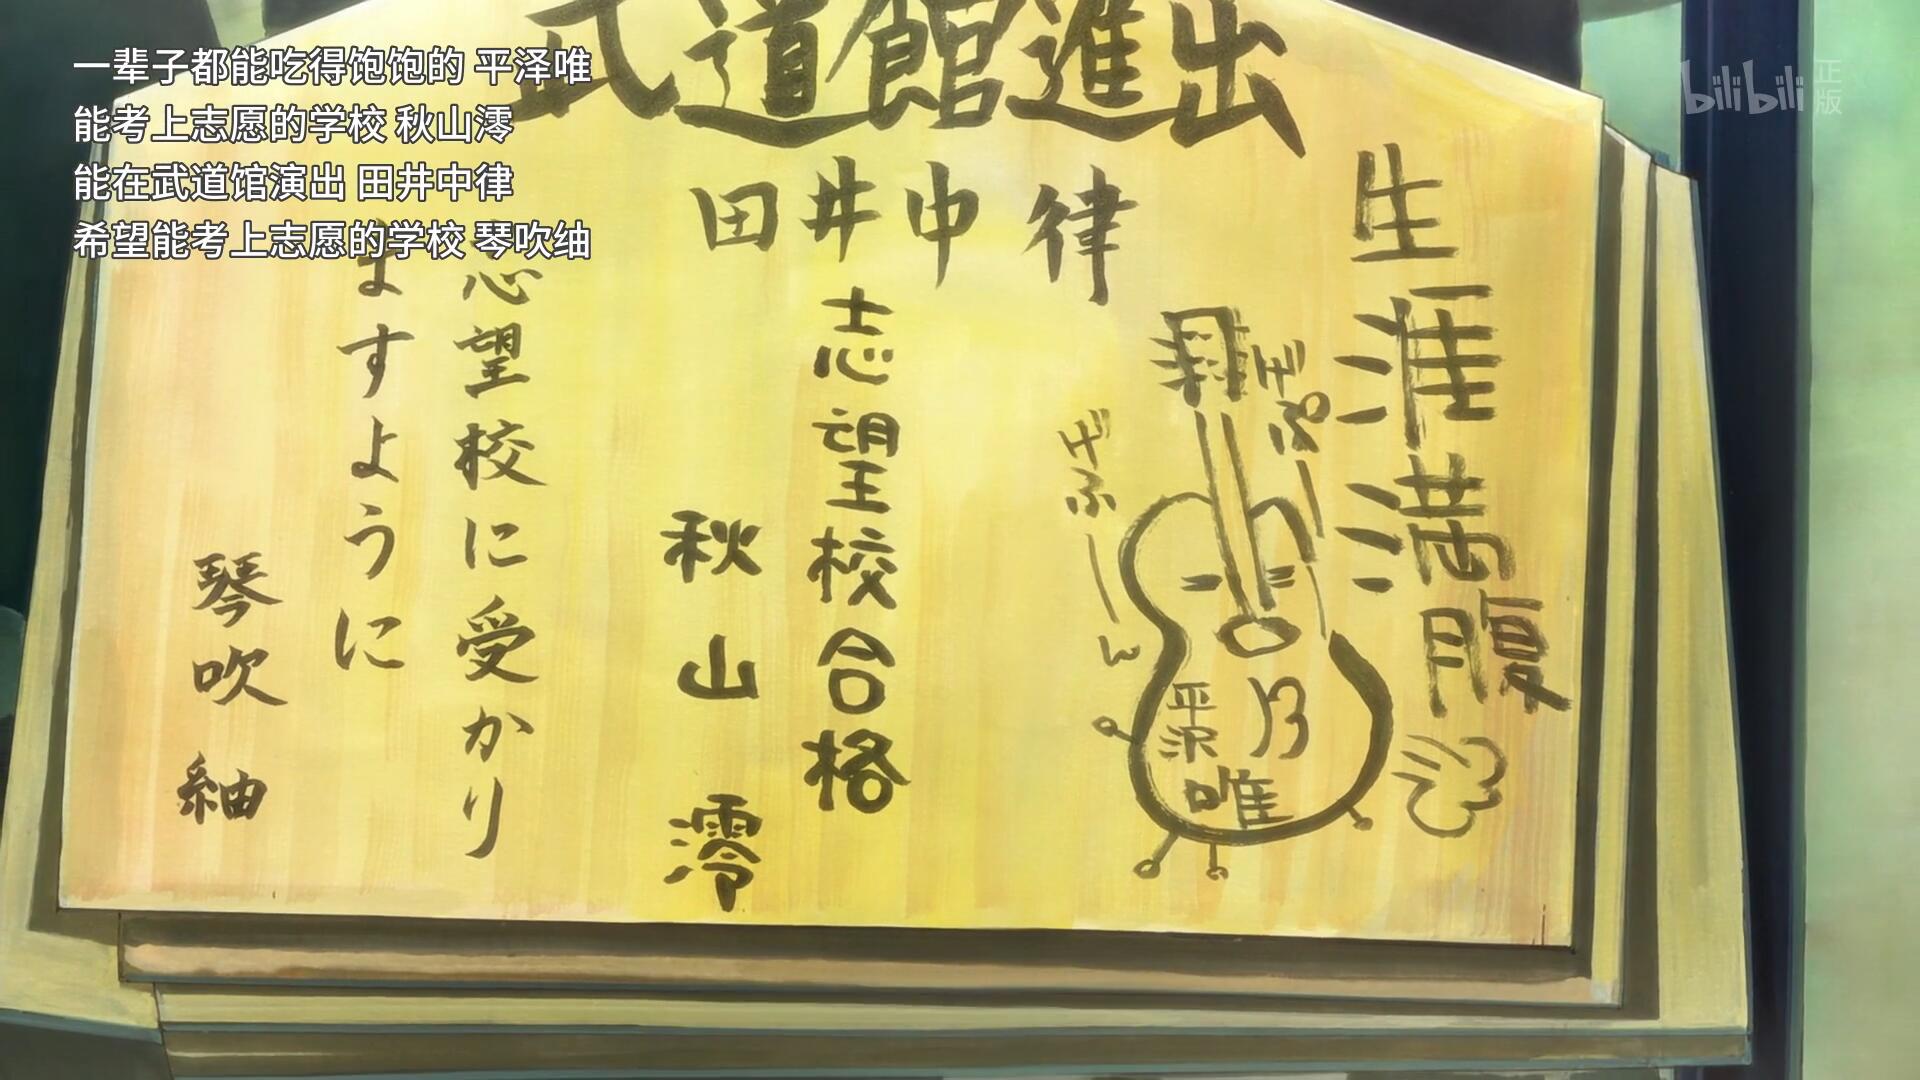 一辈子都能吃得饱饱的 平泽唯
能考上志愿的学校 秋山澪
能在武道馆演出 田井中律
希望能考上志愿的学校 琴吹䌷
bilibili 正版
武道館進出
田井中律
生涯満腹
げぷ
げふーん
平沢唯
志望校合格
秋山澪
志望校に受かり
ますように
琴吹紬